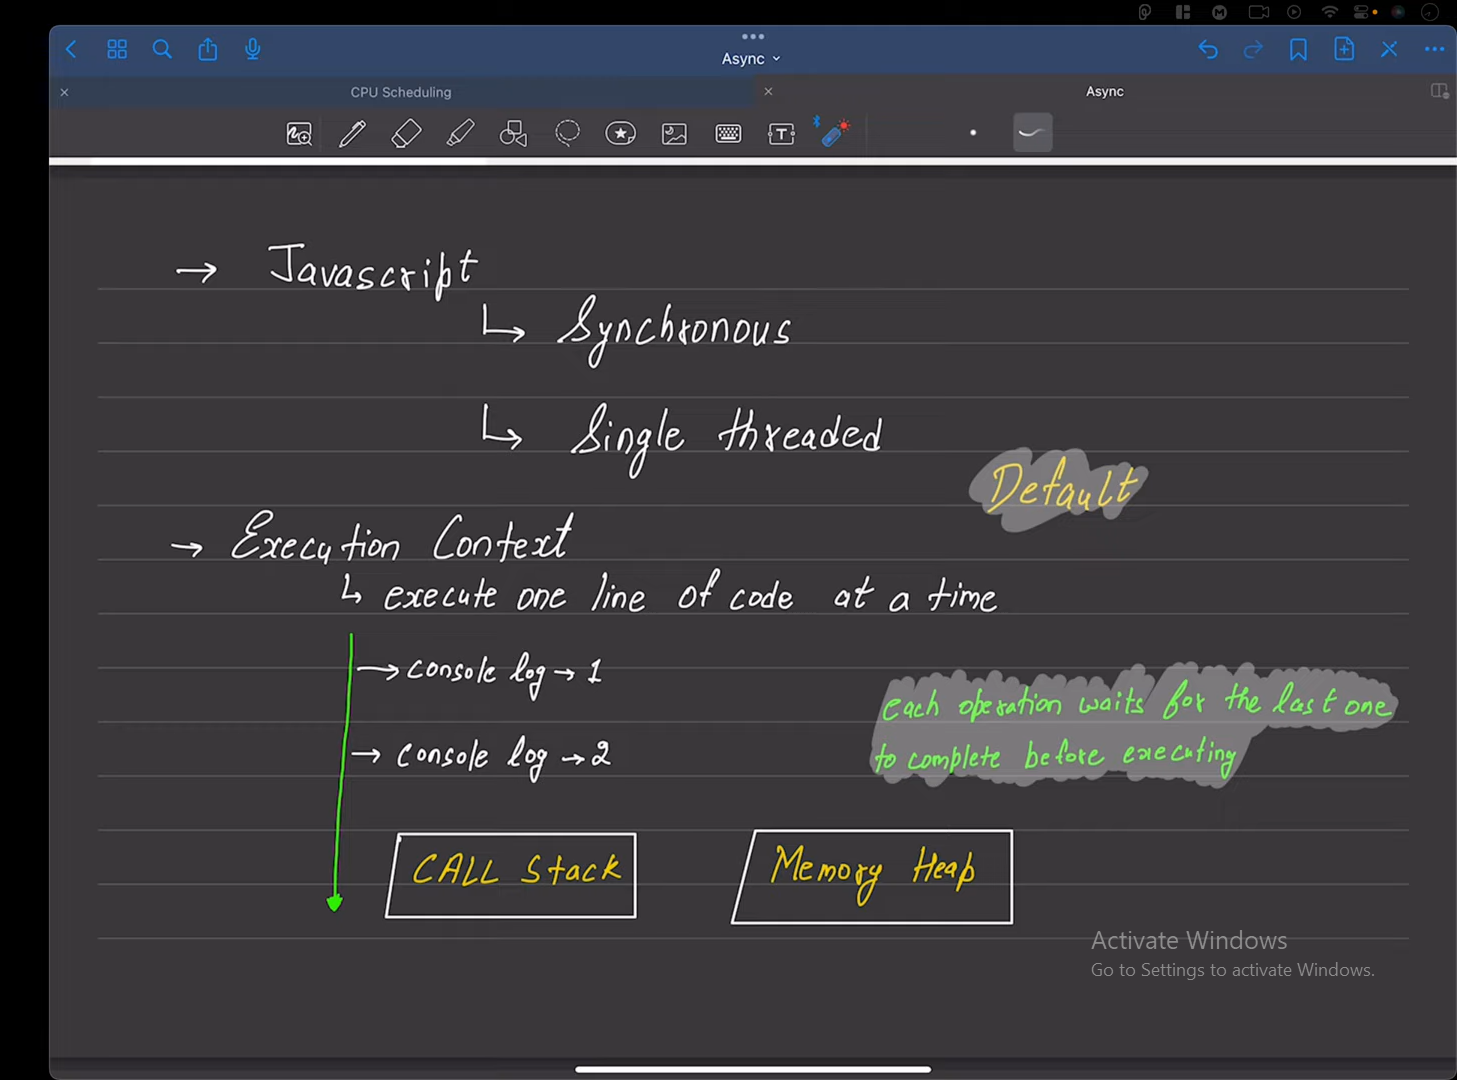 Async
CPU Scheduling
Async
→ Javascript
↳ Synchronous
↳ Single threaded
Default
→ Execution Context
↳ execute one line of code at a time
→ console log → 1
→ console log → 2
each operation waits for the last one
to complete before executing
CALL Stack
Memory Heap
Activate Windows
Go to Settings to activate Windows.